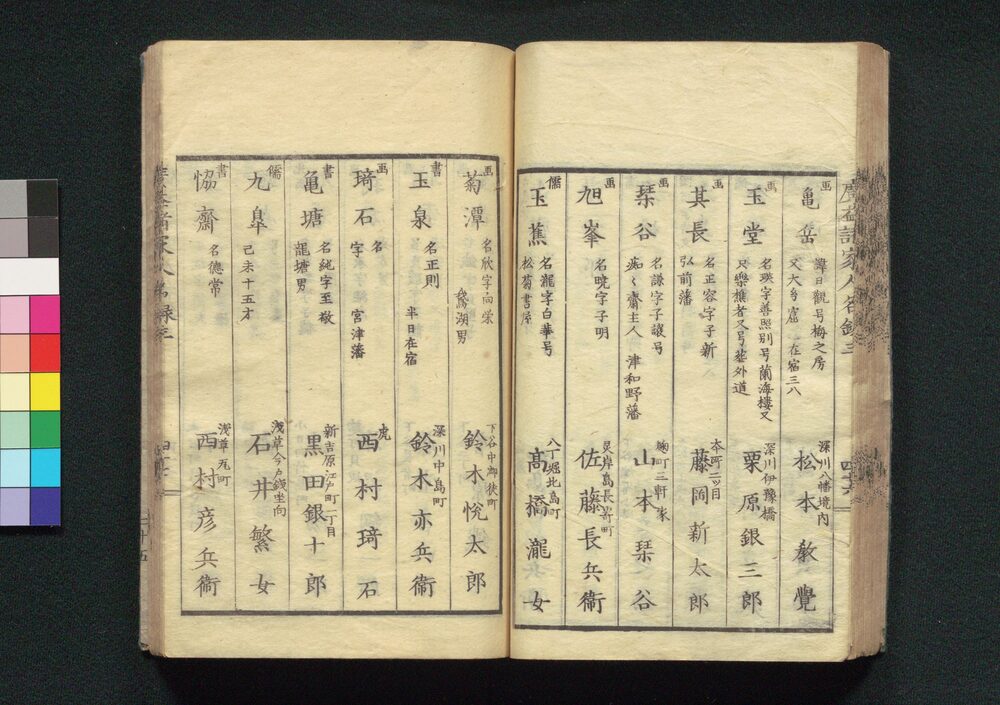 画
亀岳
諱日觀号梅之房
又大〻庵 在宿三八
深川八幡境内
松本教覺
画
玉堂
名瑛字善照别号蘭海樓又
只樂樵者又号塵外道
深川伊豫橋
栗原銀三郎
画
其長
名正容字子新
弘前藩
本町二ツ目
藤岡新太郎
画
琹谷
名謙字子讓号
痴〻齋主人 津和野藩
麹町三軒家
山本琹谷
画
旭峯
名暁字子明
灵岸島長嵜町
佐藤長兵衞
儒
玉蕉
名瀧字白華号
松菊書屋
八丁堀北島町
髙橋瀧女
画
菊潭
名欣字向栄
鵞湖男
下谷中御徒町
鈴木悦太郎
書
玉泉
名正則
半日在宿
深川中島町
鈴木亦兵衞
画
琦石
名
字 宮津藩
虎
西村琦石
書
亀塘
名純字至敬
龍塘男
新吉原江戸町二丁目
黒田銀十郎
儒
九皐
己未十五才
浅草今戸銭坐向
石井繁女
書
恊齋
名德常
浅草元町
西村彦兵衞